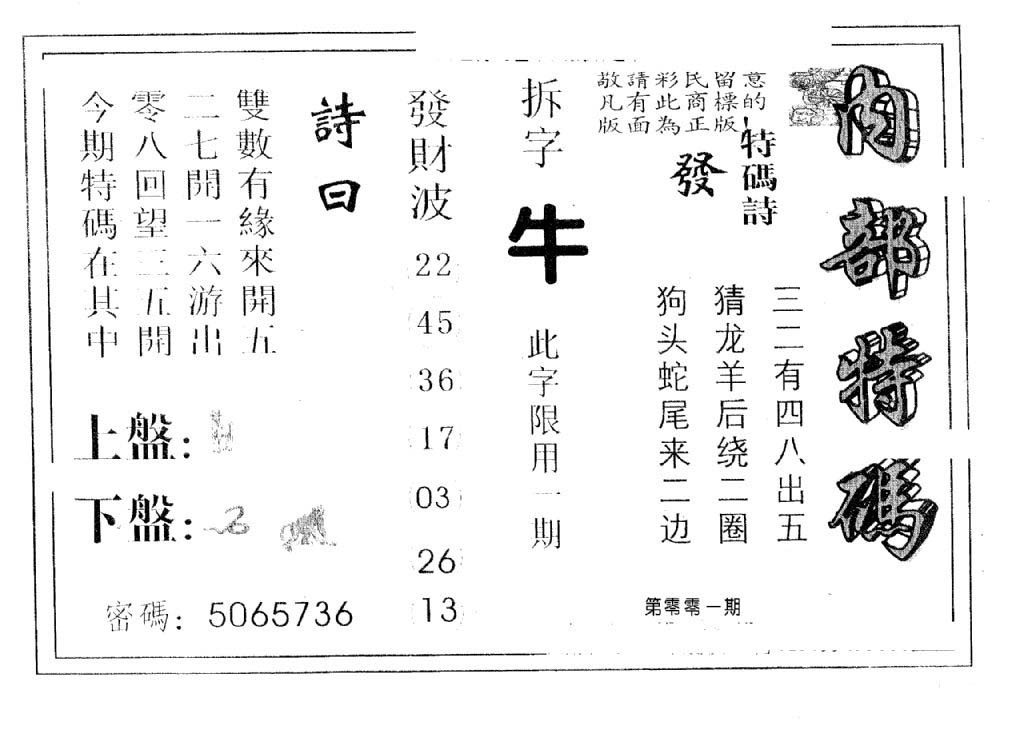 内部特碼
敬請彩民留意
凡有此商標的
版面為正版
特碼詩
發
三二有四八出五
猜龙羊后绕二圈
狗头蛇尾来二边
第零零一期
拆字
牛
此字限用一期
發財波
22
45
36
17
03
26
13
詩曰
雙數有緣來開五
二七開一六游出
零八回望三五開
今期特碼在其中
上盤:
下盤:
密碼: 5065736